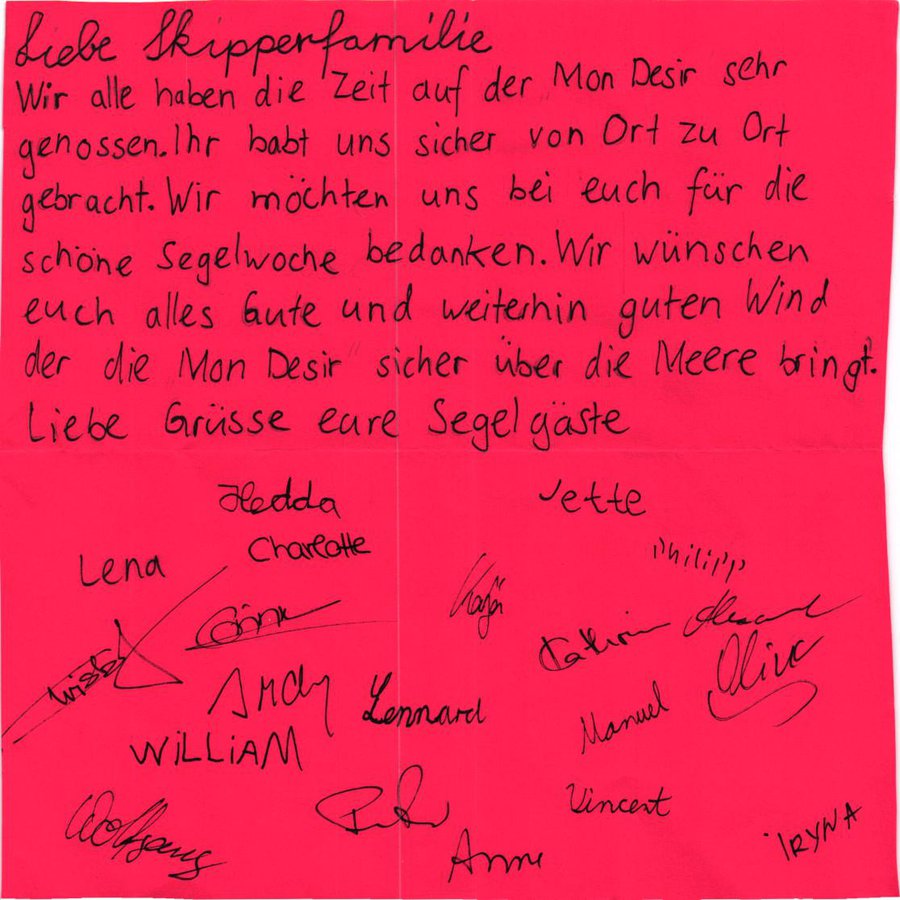 Liebe Skipperfamilie
Wir alle haben die Zeit auf der "Mon Desir" sehr
genossen. Ihr habt uns sicher von Ort zu Ort
gebracht. Wir möchten uns bei euch für die
schöne Segelwoche bedanken. Wir wünschen
euch alles Gute und weiterhin guten Wind
der die "Mon Desir" sicher über die Meere bringt.
Liebe Grüsse eure Segelgäste
Hedda
Jette
Charlotte
Lena
Philipp
Katja
Corinne
Kathrin
Andy
Lennard
Manuel
Oliver
WiLLiAM
Wolfgang
Vincent
Anne
IRYNA